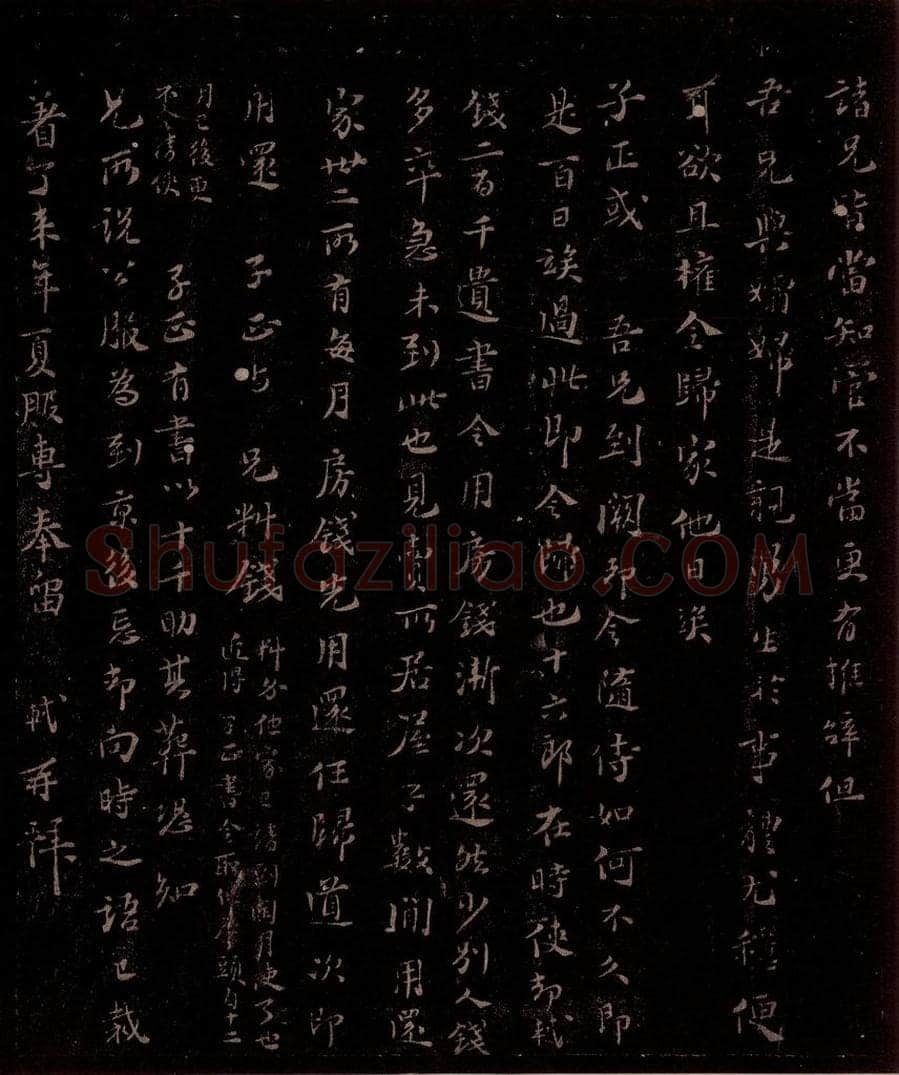 諸兄皆當知管不當更有推辭但
吾兄與媚婦是親房生於事體尤穩便
可欲且權令歸家他日俟
子正或 吾兄到闕即令隨侍如何不久即
是百日俟過此即令歸也十六郎在時使却軾
錢二百千遺書令用房錢漸次還然少別人錢
多卒急未到此也見有所居屋子數間用還
家世二所有每月房錢先用還任歸道次即
用還 子正与 兄料錢
料錢他家已請到閏月使了也
近得子正書令取伊料頭自十二
月已後更
不令請使
子正有書以十千助其葬恐知
兄所說公服為到京後忘却向時之語已裁
着丁未年夏服專奉留 軾再拜
Shufaziliao.COM